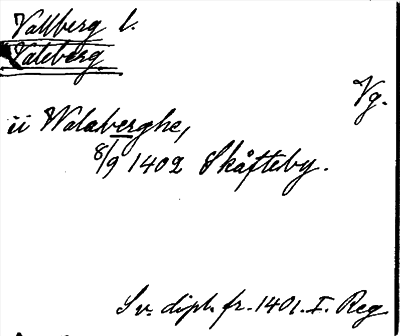 Vallberg l.
Valeberg
Vg.
ii Walaberghe,
8/9 1402 Skåfteby.
Sv. dipl. fr. 1401. I. Reg